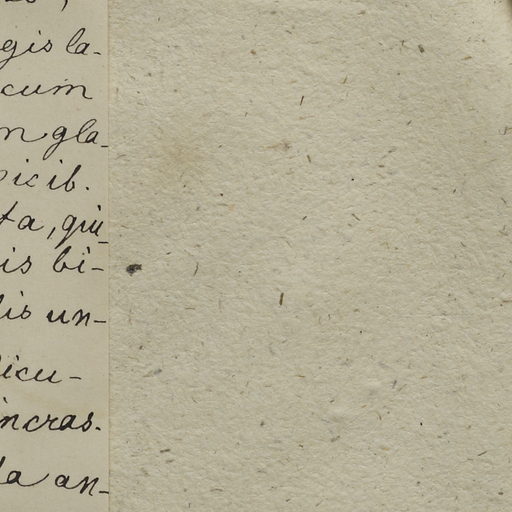 gis la-
cum
n gla-
picib.
ta, qui
is bi-
lis un-
dicu-
incras-
ta an-